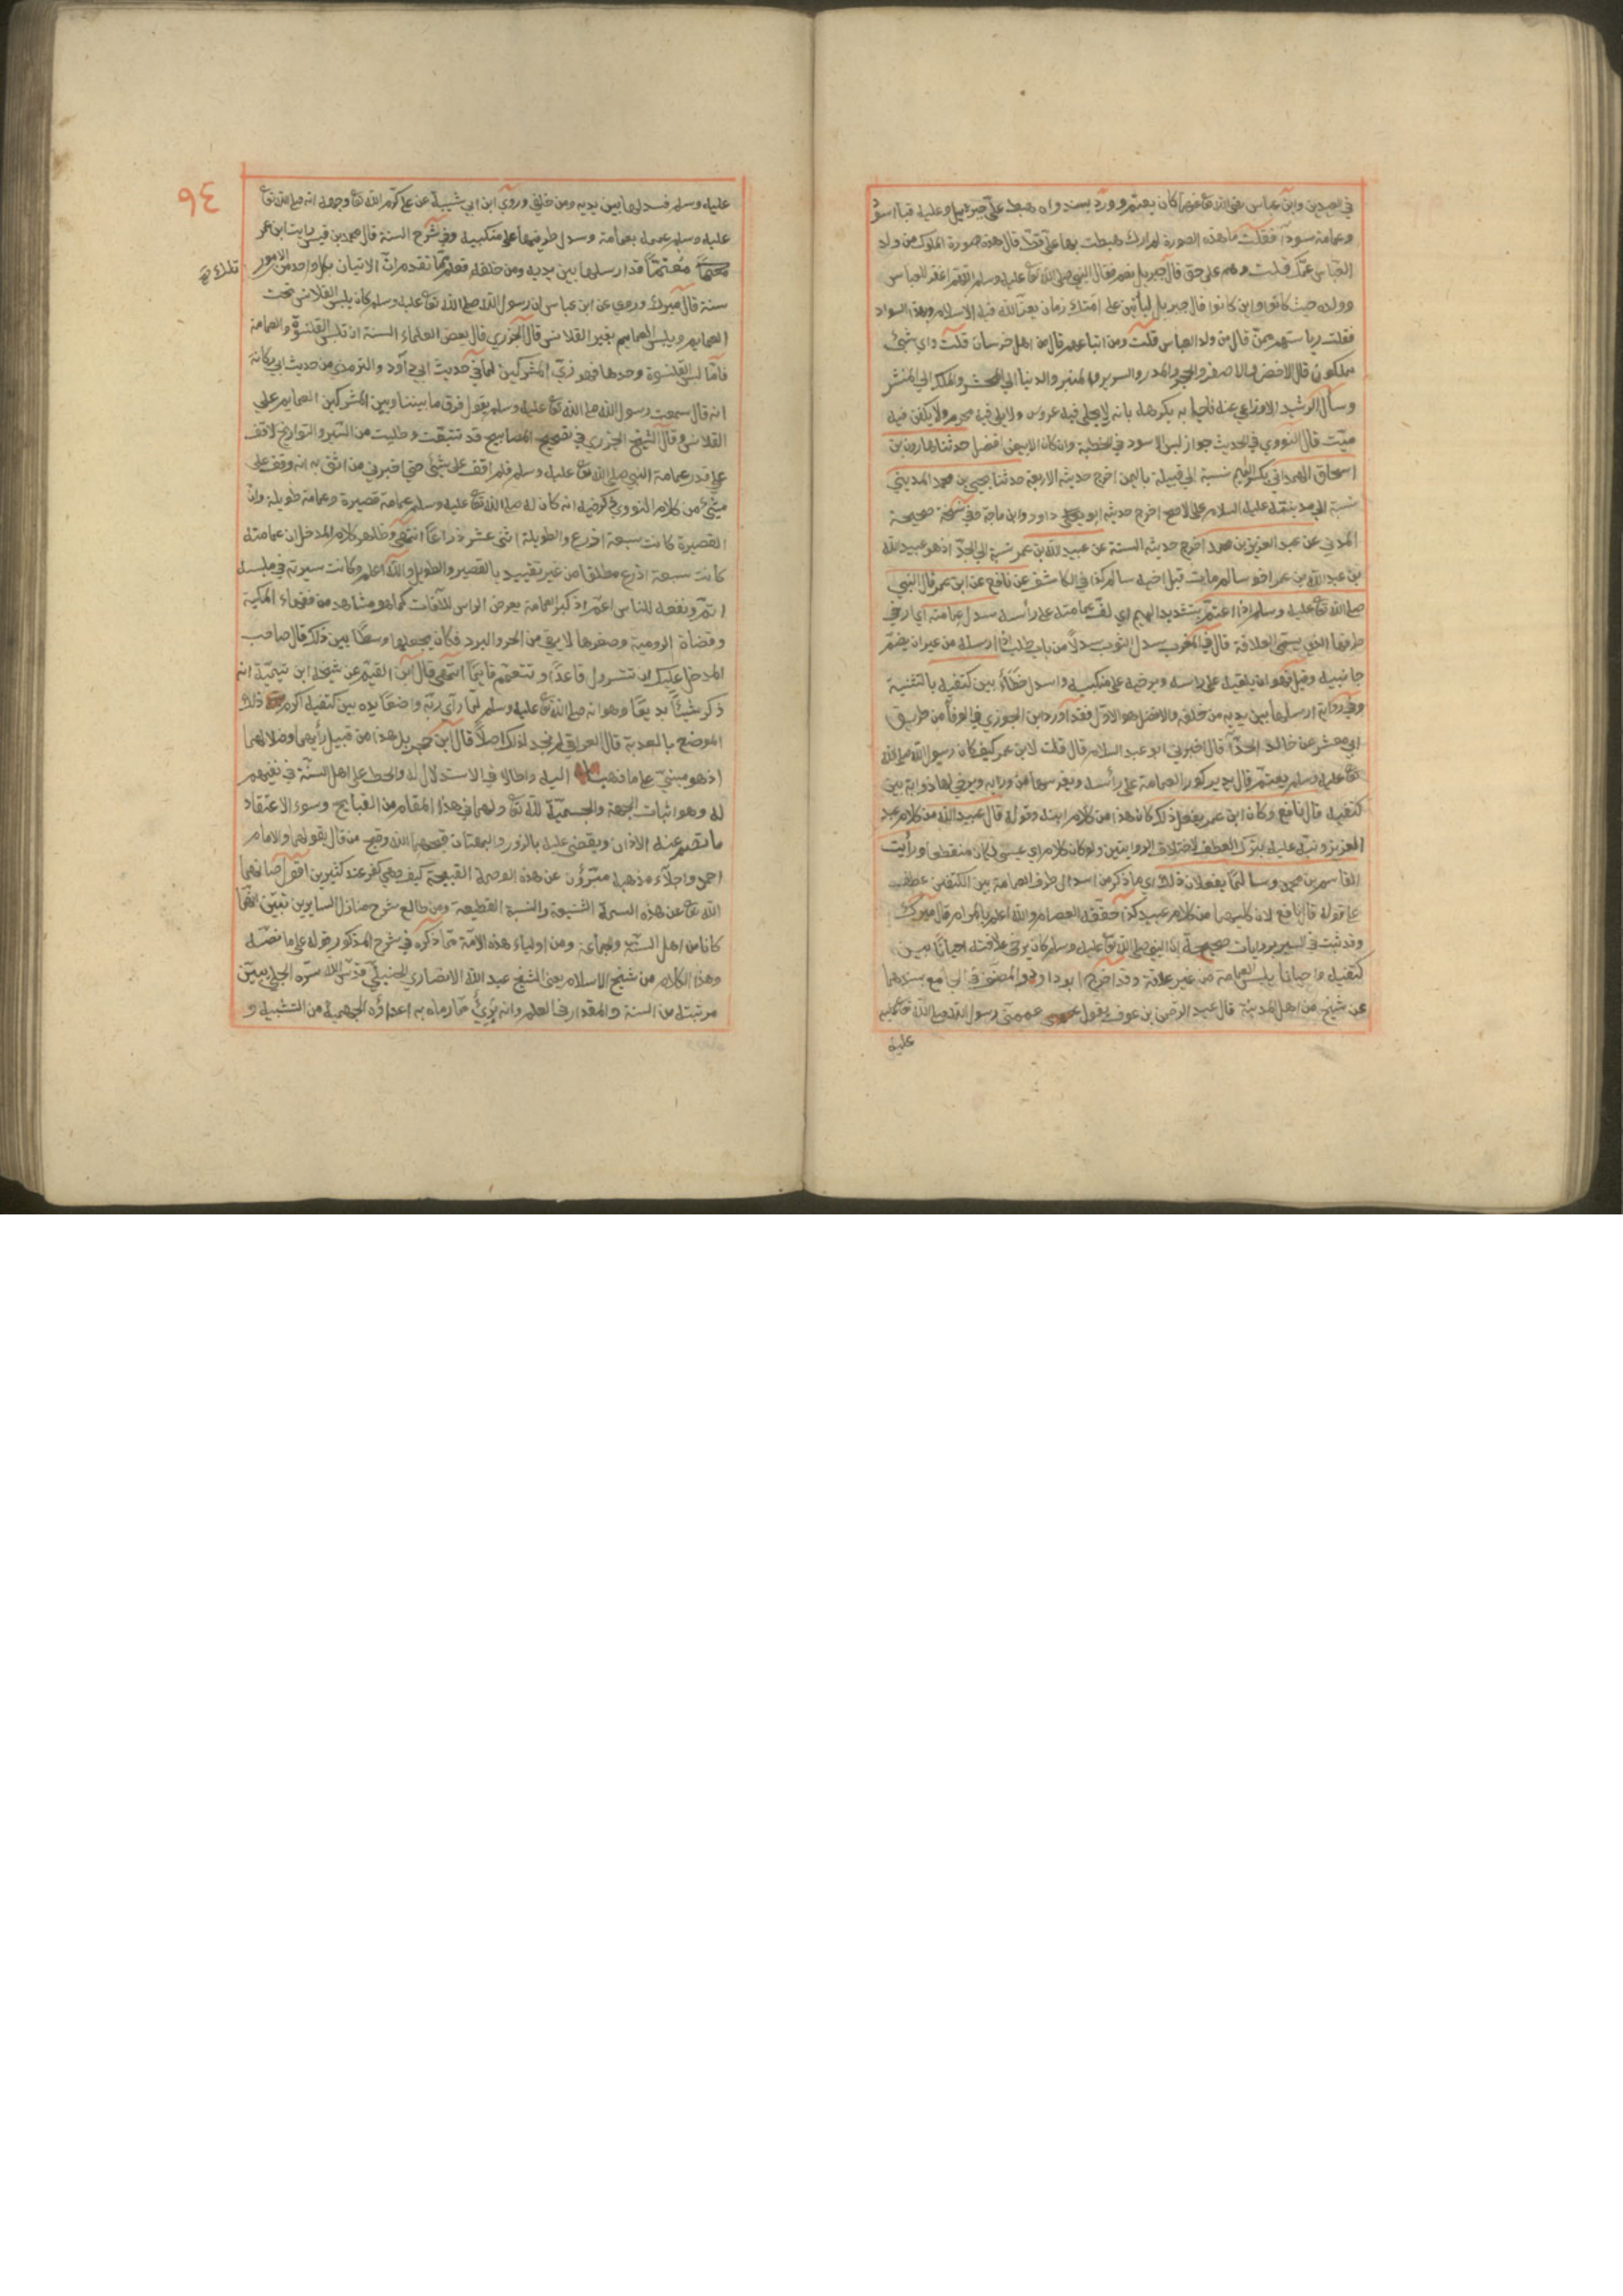 في العيدين وابن عباس رضي الله تع عنهما كان يعتم وورد بسند واه هبط على جبرئيل وعليه قبا اسود
وعمامة سودآ فقلت ما هذه الصورة لم ارك هبطت بها على قط قال هذه صورة الملوك من ولد
العباس عمك قلت وهم على حق قال جبريل نعم فقال النبي صلى الله تع عليه وسلم اللهم اغفر للعباس
وولده حيث كانوا واين كانوا قال جبريل ليأتين على امتك زمان يعز الله فيه الاسلام وبهذا السواد
فقلت رياستهم ممن قال من ولد العباس قلت ومن اتباعهم قال من اهل خرسان قلت واي شئ
يملكون قال الاخضر والاصفر والحجر والمدر والسرير والمنبر والدنيا الي المحشر والملك الي المنشر
وسأل الرشيد الاوزاعي عنه فاجابه يكرهه بانه لا يجلى فيه عروس ولا يلبي فيه محرم ولا يكفن فيه
ميت قال النووي في الحديث جواز لبس الاسود في الخطبة وان كان الابيض افضل حدثنا هارون بن
اسحاق الهمداني بسكون الميم نسبة الي قبيلة باليمن اخرج حديثه الاربعة حدثنا يحيى بن محمد المديني
نسبة الي مدينته عليه السلام على الاصح اخرج حديثه ابو داود وابن ماجة وفي نسخة صحيحة
المدني عن عبد العزيز بن محمد اخرج حديثه الستة عن عبيد الله بن عمر نسبة الي الجد اذ هو عبيد الله
بن عبد الله بن عمر اخو سالم مات قبل اخيه سالم كذا في الكاشف عن نافع عن ابن عمر قال النبي
صلى الله تع عليه وسلم اذا اعتم بتشديد الميم اي لف عمامته على رأسه سدل عمامته اي ارخي
طرفها الذي يسمى العلاقة قال في المغرب سدل الثوب سدلا من باب طلب اذا ارسله من غير ان يضم
جانبيه وقيل هو ان يلقيه على راسه ويرخيه على منكبيه واسدل خطأ بين كتفيه بالتثنية
وفي رواية ارسلها بين يديه من خلفه والافضل هو الاول فقد اورد ابن الجوزي في الوفا من طريق
ابي معشر عن خالد الحذآ قال اخبرني ابو عبد السلام قال قلت لابن عمر كيف كان رسول الله صلى الله
تع عليه وسلم يعتم قال يدير كور العمامة على رأسه ويغرسها من ورايه ويرخي لها ذوابة بين
كتفيه قال نافع وكان ابن عمر يفعل ذلك كان هذا من كلام ابنه وقوله قال عبيد الله من كلام عبد
العزيز ونبه عليه بترك العطف لاختلاف الروايتين ولو كان كلام ابي عيسى لكان منقطعا ورأيت
القاسم بن محمد وسالما يفعلان ذلك اي ما ذكر من اسدال طرف العمامة بين الكتفين عطف
على قوله قال نافع لان كليهما من كلام عبيد كذا حققه العصام والله اعلم بالمرام قال ميرك
وقد ثبت في السير بروايات صحيحة ان النبي صلى الله تع عليه وسلم كان يرخي علاقته احيانا بين
كتفيه واحيانا يلبس العمامة من غير علاقة وقد اخرج ابو داود والمصنف في الجامع بسندهما
عن شيخ من اهل المدينة قال عبد الرحمن بن عوف يقول عممني رسول الله صلى الله تع عليه
عليه
٩٤
عليه وسلم فسدلها بين يديه ومن خلفي وروي ابن ابي شيبة عن علي كرم الله تع وجهه انه صلى الله تع
عليه وسلم عممه بعمامة وسدل طرفيها على منكبيه وفي شرح السنة قال محمد بن قيس رايت ابن عمر
معتما قد ارسلها بين يديه ومن خلفه فعلم مما تقدم ان الاتيان بكل واحد من الامور
تلك
سنة قال ميرك وروي عن ابن عباس ان رسول الله صلى الله تع عليه وسلم كان يلبس القلانس تحت
العمايم ويلبس العمايم بغير القلانس قال الجزري قال بعض العلماء السنة ان تلبس القلنسوة والعمامة
فاما لبس القلنسوة وحدها فهو زي المشركين لما في حديث ابي داود والترمذي من حديث ابي ركانة
انه قال سمعت رسول الله صلى الله تع عليه وسلم يقول فرق ما بيننا وبين المشركين العمايم على
القلانس وقال الشيخ الجزري في تصحيح المصابيح قد تتبعت وطلبت من السير والتواريخ لاقف
على قدر عمامة النبي صلى الله تع عليه وسلم فلم اقف على شئ حتى اخبرني من اثق به انه وقف على
شئ من كلام النووي ذكر فيه انه كان له صلى الله تع عليه وسلم عمامة قصيرة وعمامة طويلة وان
القصيرة كانت سبعة اذرع والطويلة اثني عشر ذراعا انتهى وظاهر كلام المدخل ان عمامته
كانت سبعة اذرع مطلقا من غير تقييد بالقصير والطويل والله اعلم وكانت سيرته في ملبسه
اتم ونفعه للناس اعم اذ كبر العمامة يعرض الراس للآفات كما هو مشاهد من فقهاء المكية
وقضاة الرومية وصغرها لا يقي من الحر والبرد فكان يجعلها وسطا بين ذلك قال صاحب
المدخل عليك ان تتسرول قاعدا وتتعمم قايما انتهى قال ابن القيم عن شيخه ابن تيمية انه
ذكر شيئا بديعا وهو انه صلى الله تع عليه وسلم لما رآى ربه واضعا يده بين كتفيه اكرم ذلك
الموضع بالعذبة قال العراقي لم نجد لذلك اصلا قال ابن حجر بل هذا من قبيل رأيهما وضلالهما
اذ هو مبني على ما ذهبا اليه واطالا في الاستدلال له والحط على اهل السنة في نفيهم
له وهو اثبات الجهة والجسمية لله تع ولهما في هذا المقام من القبايح وسوء الاعتقاد
ما تصم عنه الاذان ويقضى عليه بالزور والبهتان قبحهما الله وقبح من قال بقولهما والامام
احمد واجلاء مذهبه مبرؤن عن هذه الوصمة القبيحة كيف وهي كفر عند كثيرين اقول صانهما
الله تع عن هذه السمة الشنيعة والنسبة الفظيعة ومن طالع شرح منازل السايرين تبين انهما
كانا من اهل السنة والجماعة ومن اولياء هذه الامة مما ذكره في شرح المذكور قوله على ما نصه
وهذا الكلام من شيخ الاسلام يعني الشيخ عبد الله الانصاري الحنبلي قدس الله سره الجلي يبين
مرتبته من السنة والمقدار في العلم وانه برئ مما رماه به اعداؤه الجهمية من التشبيه و